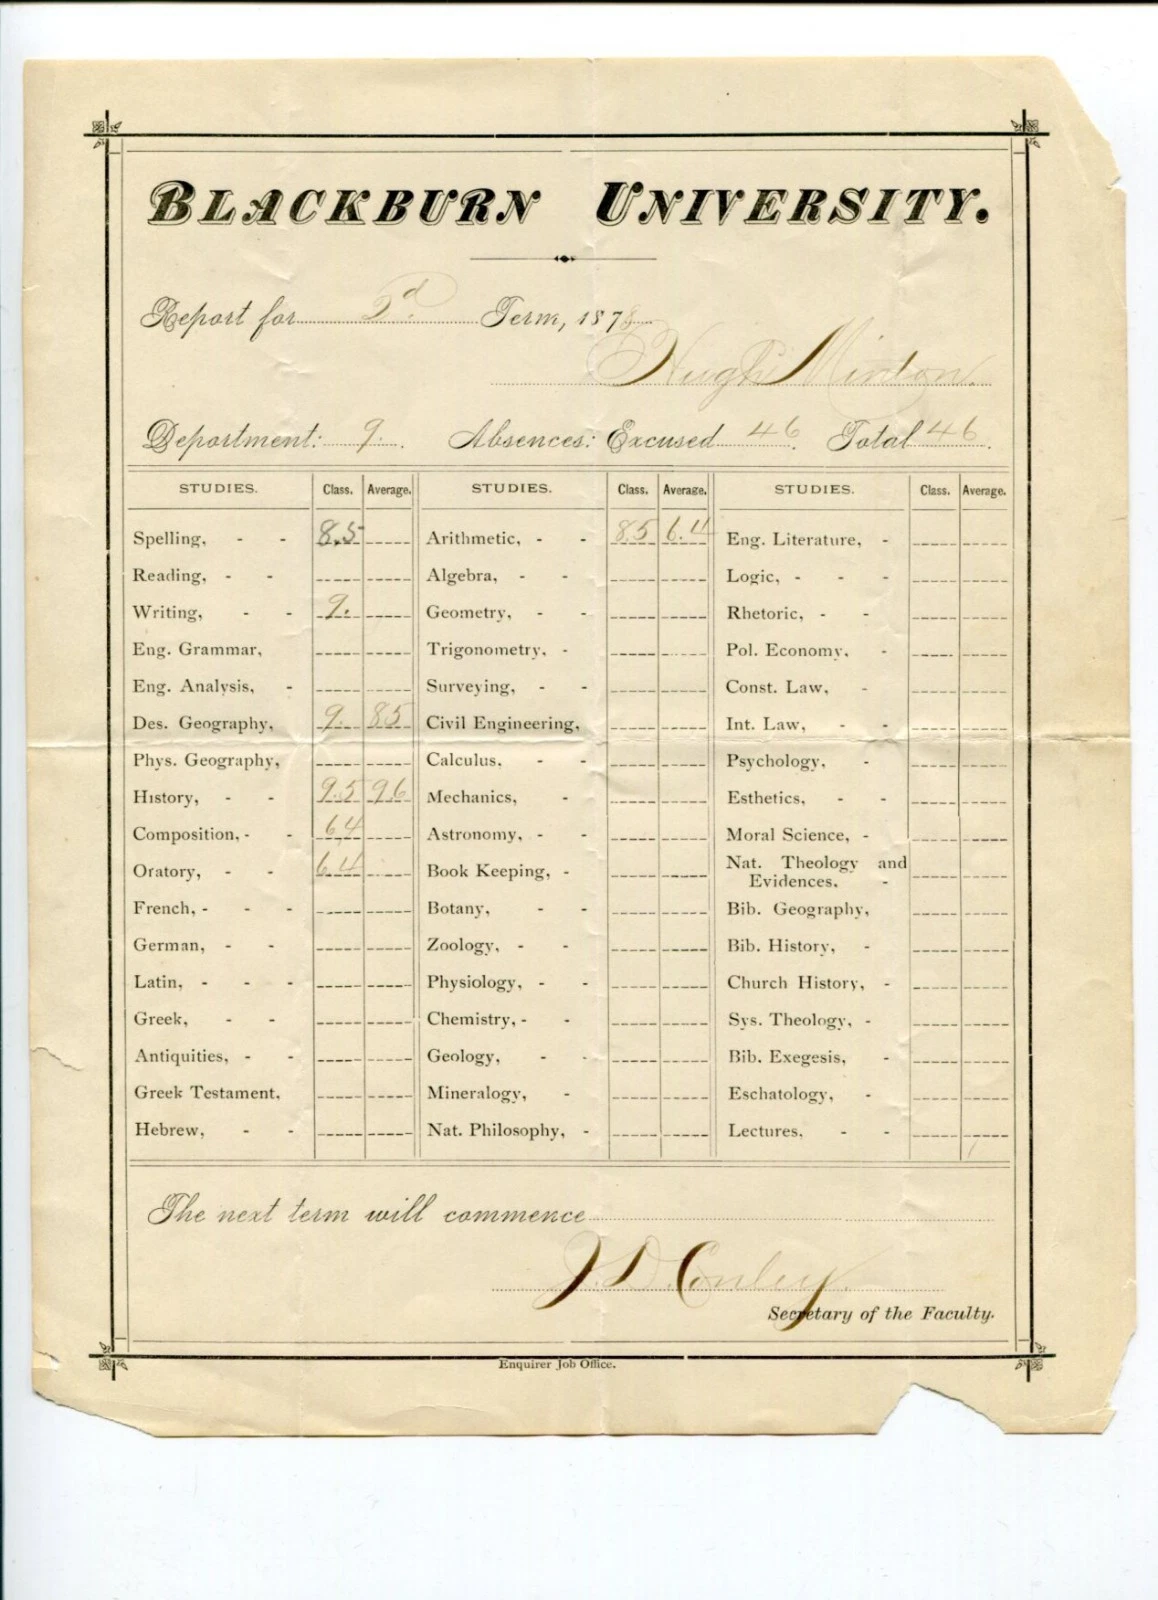 BLACKBURN UNIVERSITY.
Report for 3d. Term, 1878
Hugh Minton.
Deportment: 9. Absences: Excused 46. Total 46.
STUDIES. Class. Average. STUDIES. Class. Average. STUDIES. Class. Average.
Spelling, - - 8.5 Arithmetic, - - 8.5 6.4 Eng. Literature, -
Reading, - - Algebra, - - Logic, - - -
Writing, - - 9. Geometry, - - Rhetoric, - -
Eng. Grammar, Trigonometry, - Pol. Economy, -
Eng. Analysis, - Surveying, - - Const. Law, -
Des. Geography, 9. 8.5 Civil Engineering, Int. Law, - -
Phys. Geography, Calculus, - - Psychology, -
History, - - 9.5 9.6 Mechanics, - Esthetics, - -
Composition, - - 6.4 Astronomy, - - Moral Science, -
Oratory, - - 6.4 Book Keeping, - Nat. Theology and
Evidences. -
French, - - - Botany, - - Bib. Geography,
German, - - Zoology, - - Bib. History, -
Latin, - - - Physiology, - - Church History, -
Greek, - - Chemistry, - - Sys. Theology, -
Antiquities, - - Geology, - - Bib. Exegesis, -
Greek Testament, Mineralogy, - Eschatology, -
Hebrew, - - Nat. Philosophy, - Lectures, - -
The next term will commence
J. D. Conley.
Secretary of the Faculty.
Enquirer Job Office.